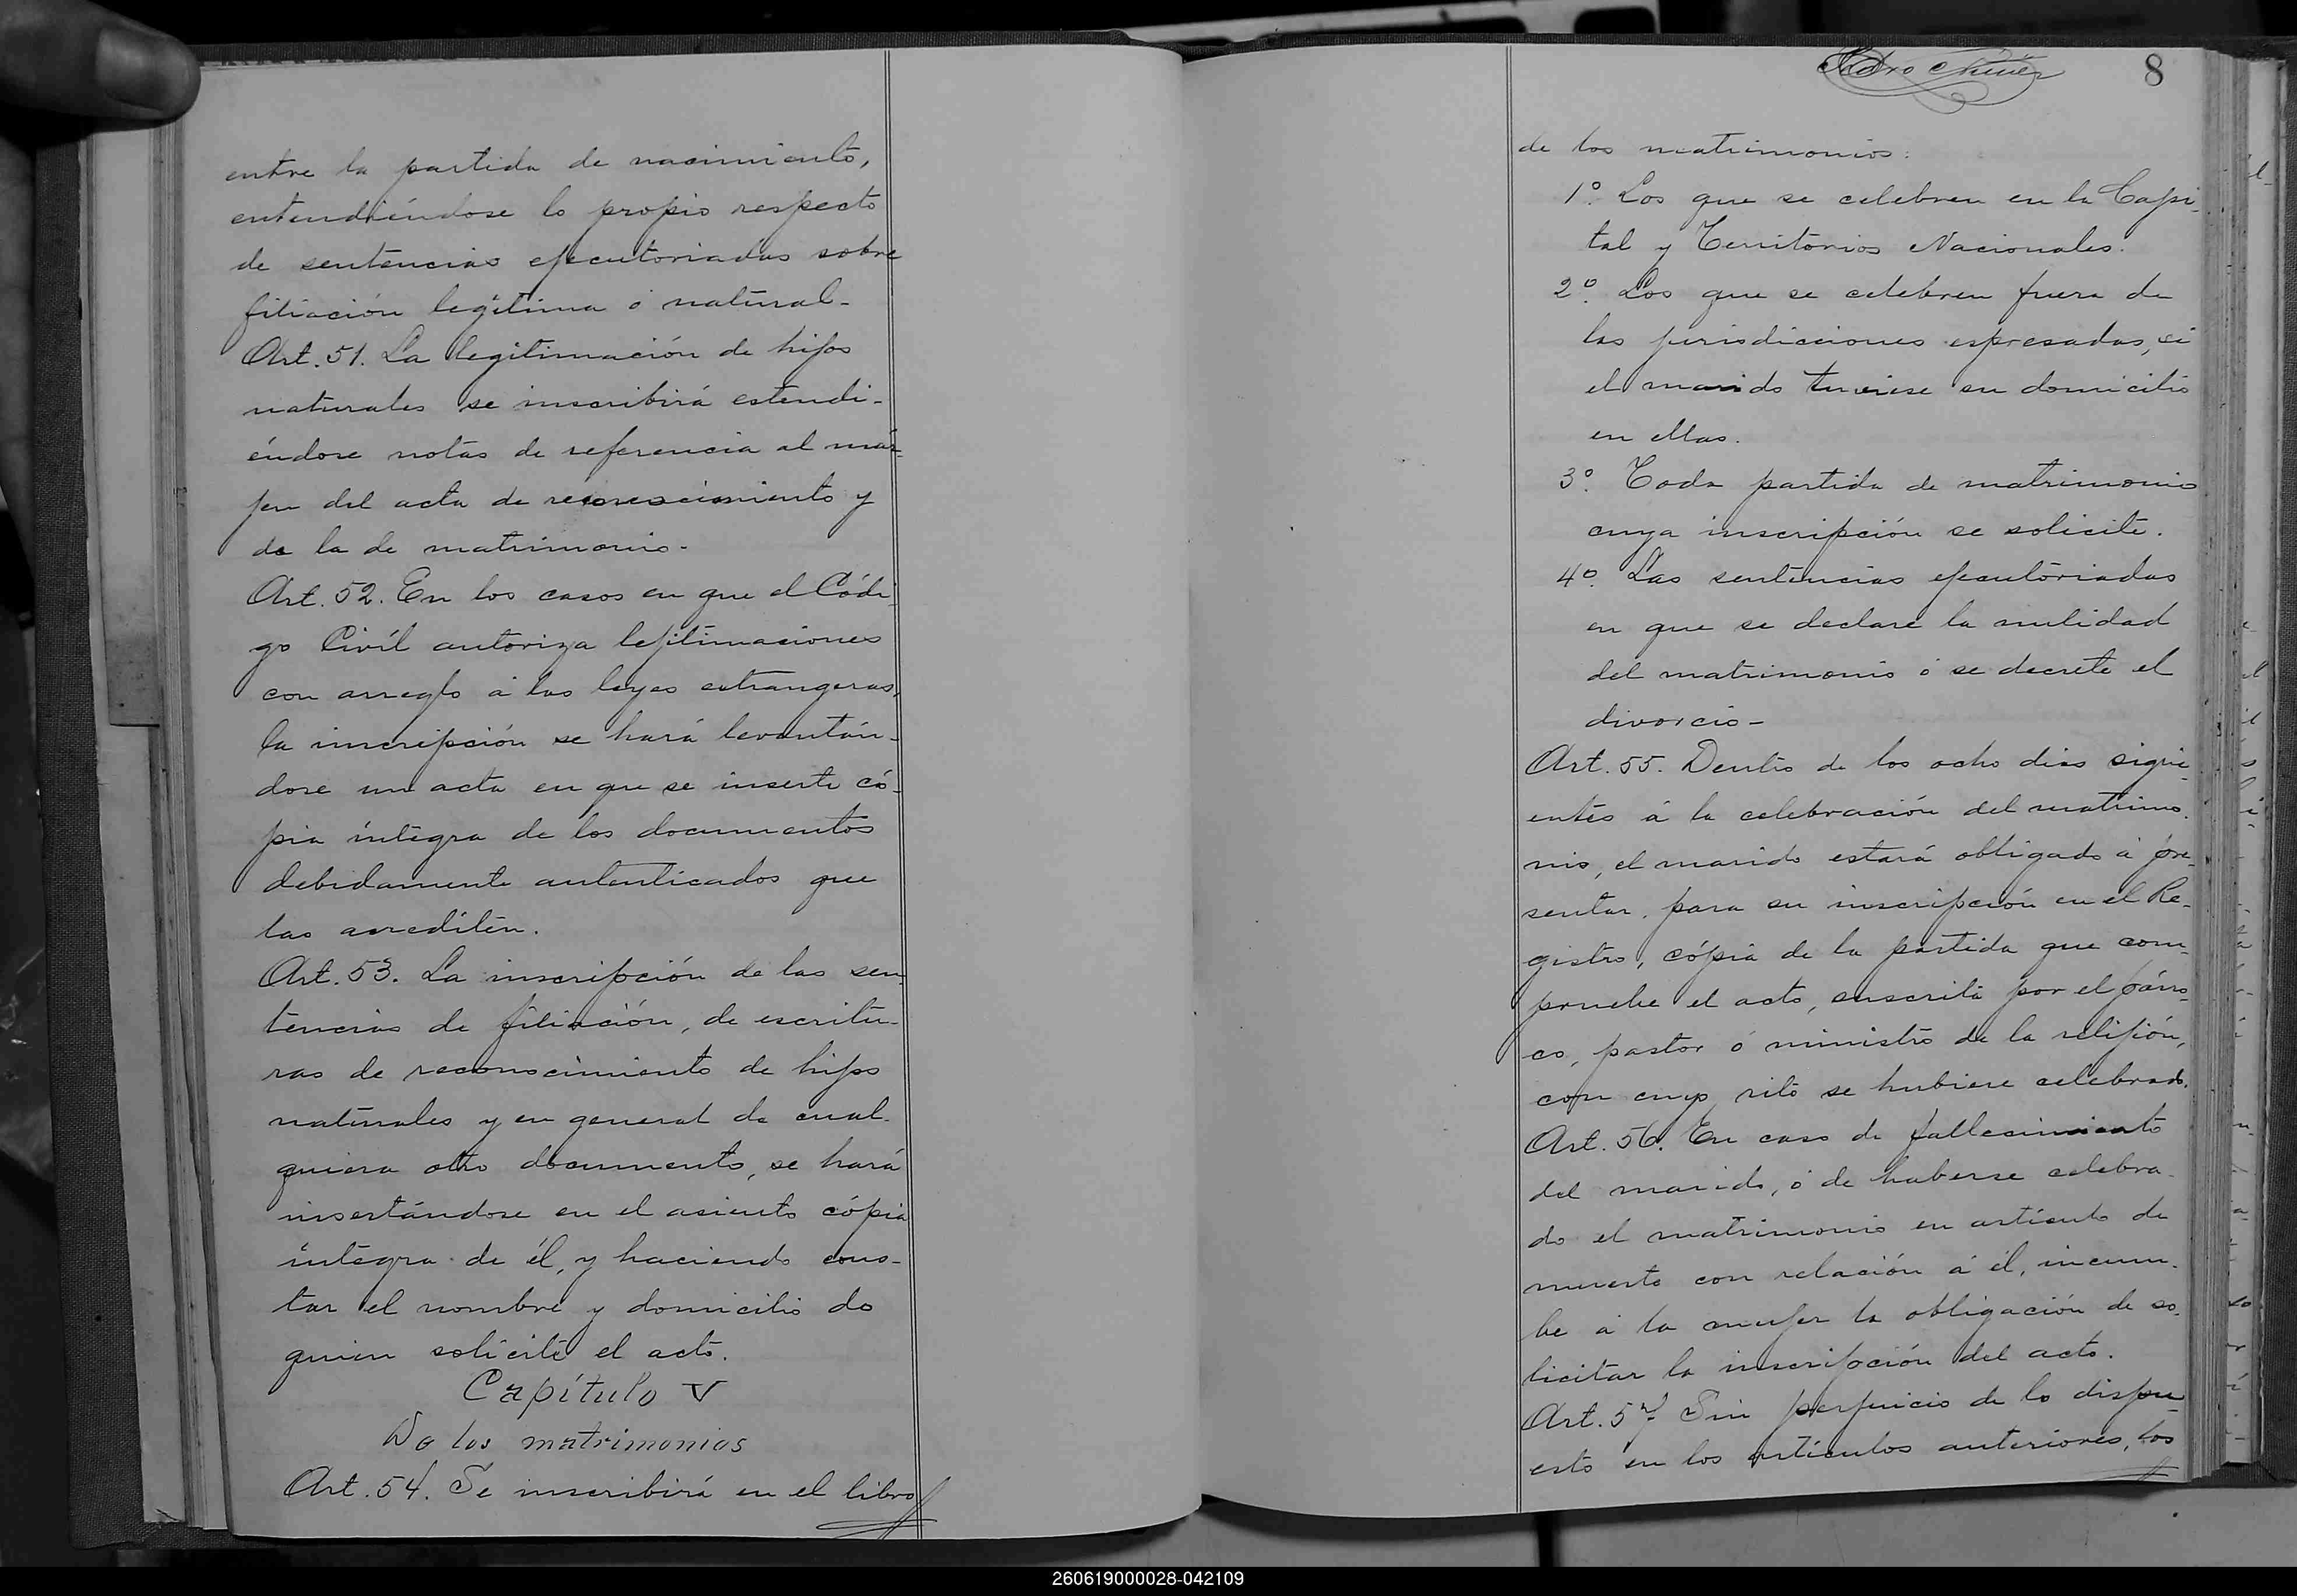 entre la partida de nacimiento,
entendiéndose lo propio respecto
de sentencias ejecutoriadas sobre
filiación legítima ó natural-
Art. 51. La legitimación de hijos
naturales se inscribirá estendi-
éndose notas de referencia al már-
jen del acta de reconocimiento y
de la de matrimonio-
Art. 52. En los casos en que el Códi-
go Civíl autoriza lejitimaciones
con arreglo á las leyes estrangeras,
la inscripción se hará levantán-
dose un acta en que se inserte có-
pia íntegra de los documentos
debidamente autenticados que
las acrediten.
Art. 53. La inscripción de las sen-
tencias de filiación, de escritu-
ras de reconocimiento de hijos
naturales y en general de cual-
quiera otro documento, se hará
insertándose en el asiento cópia
íntegra de él, y haciendo cons-
tar el nombre y domicilio de
quien solicite el acto.
Capítulo V
De los matrimonios
Art. 54. Se inscribirá en el libro
Pedro Nuñez
8
de los matrimonios:
1º. Los que se celebren en la Capi-
tal y Territorios Nacionales.
2º. Los que se celebren fuera de
las jurisdicciones espresadas, si
el marido tuviese su domicilio
en ellas.
3º. Toda partida de matrimonio
cuya inscripción se solicite.
4º. Las sentencias ejecutoriadas
en que se declare la nulidad
del matrimonio ó se decrete el
divorcio-
Art. 55. Dentro de los ocho dias sigui-
entes á la celebración del matrimo-
nio, el marido estará obligado á pre-
sentar, para su inscripción en el Re-
gistro, cópia de la partida que com-
pruebe el acto, suscrita por el párro-
co, pastor ó ministro de la relijión,
con cuyo rito se hubiere celebrado.
Art. 56. En caso de fallecimiento
del marido, ó de haberse celebra-
do el matrimonio en artículo de
muerte con relación á él, incum-
be á la mujer la obligación de so-
licitar la inscripción del acto.
Art. 57 Sin perjuicio de lo dispu-
esto en los artículos anteriores, los
260619000028-042109